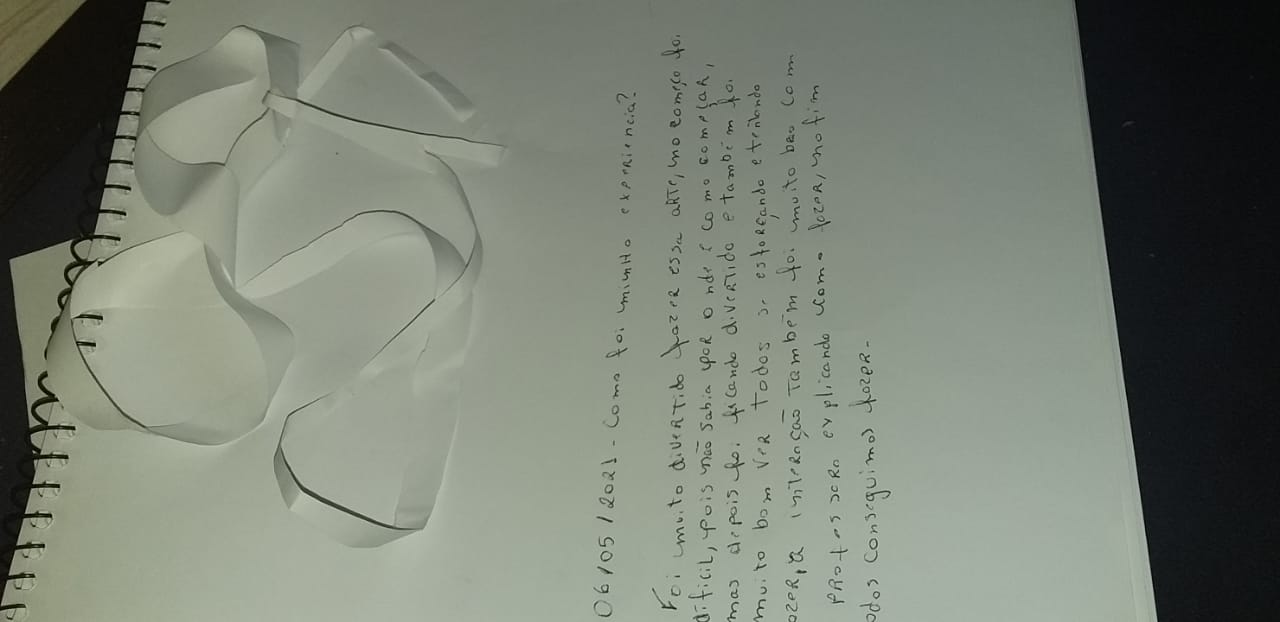 06/05/2021 - Como foi minha experiencia?
Foi muito divertido fazer essa arte, no começo foi
dificil, pois não sabia por onde é como começar,
mas depois foi ficando divertido e também foi
muito bom ver todos se esforçando e tentando
azer, a interação também foi muito boa com
professora explicando como fazer, no fim
odos conseguimos fazer.